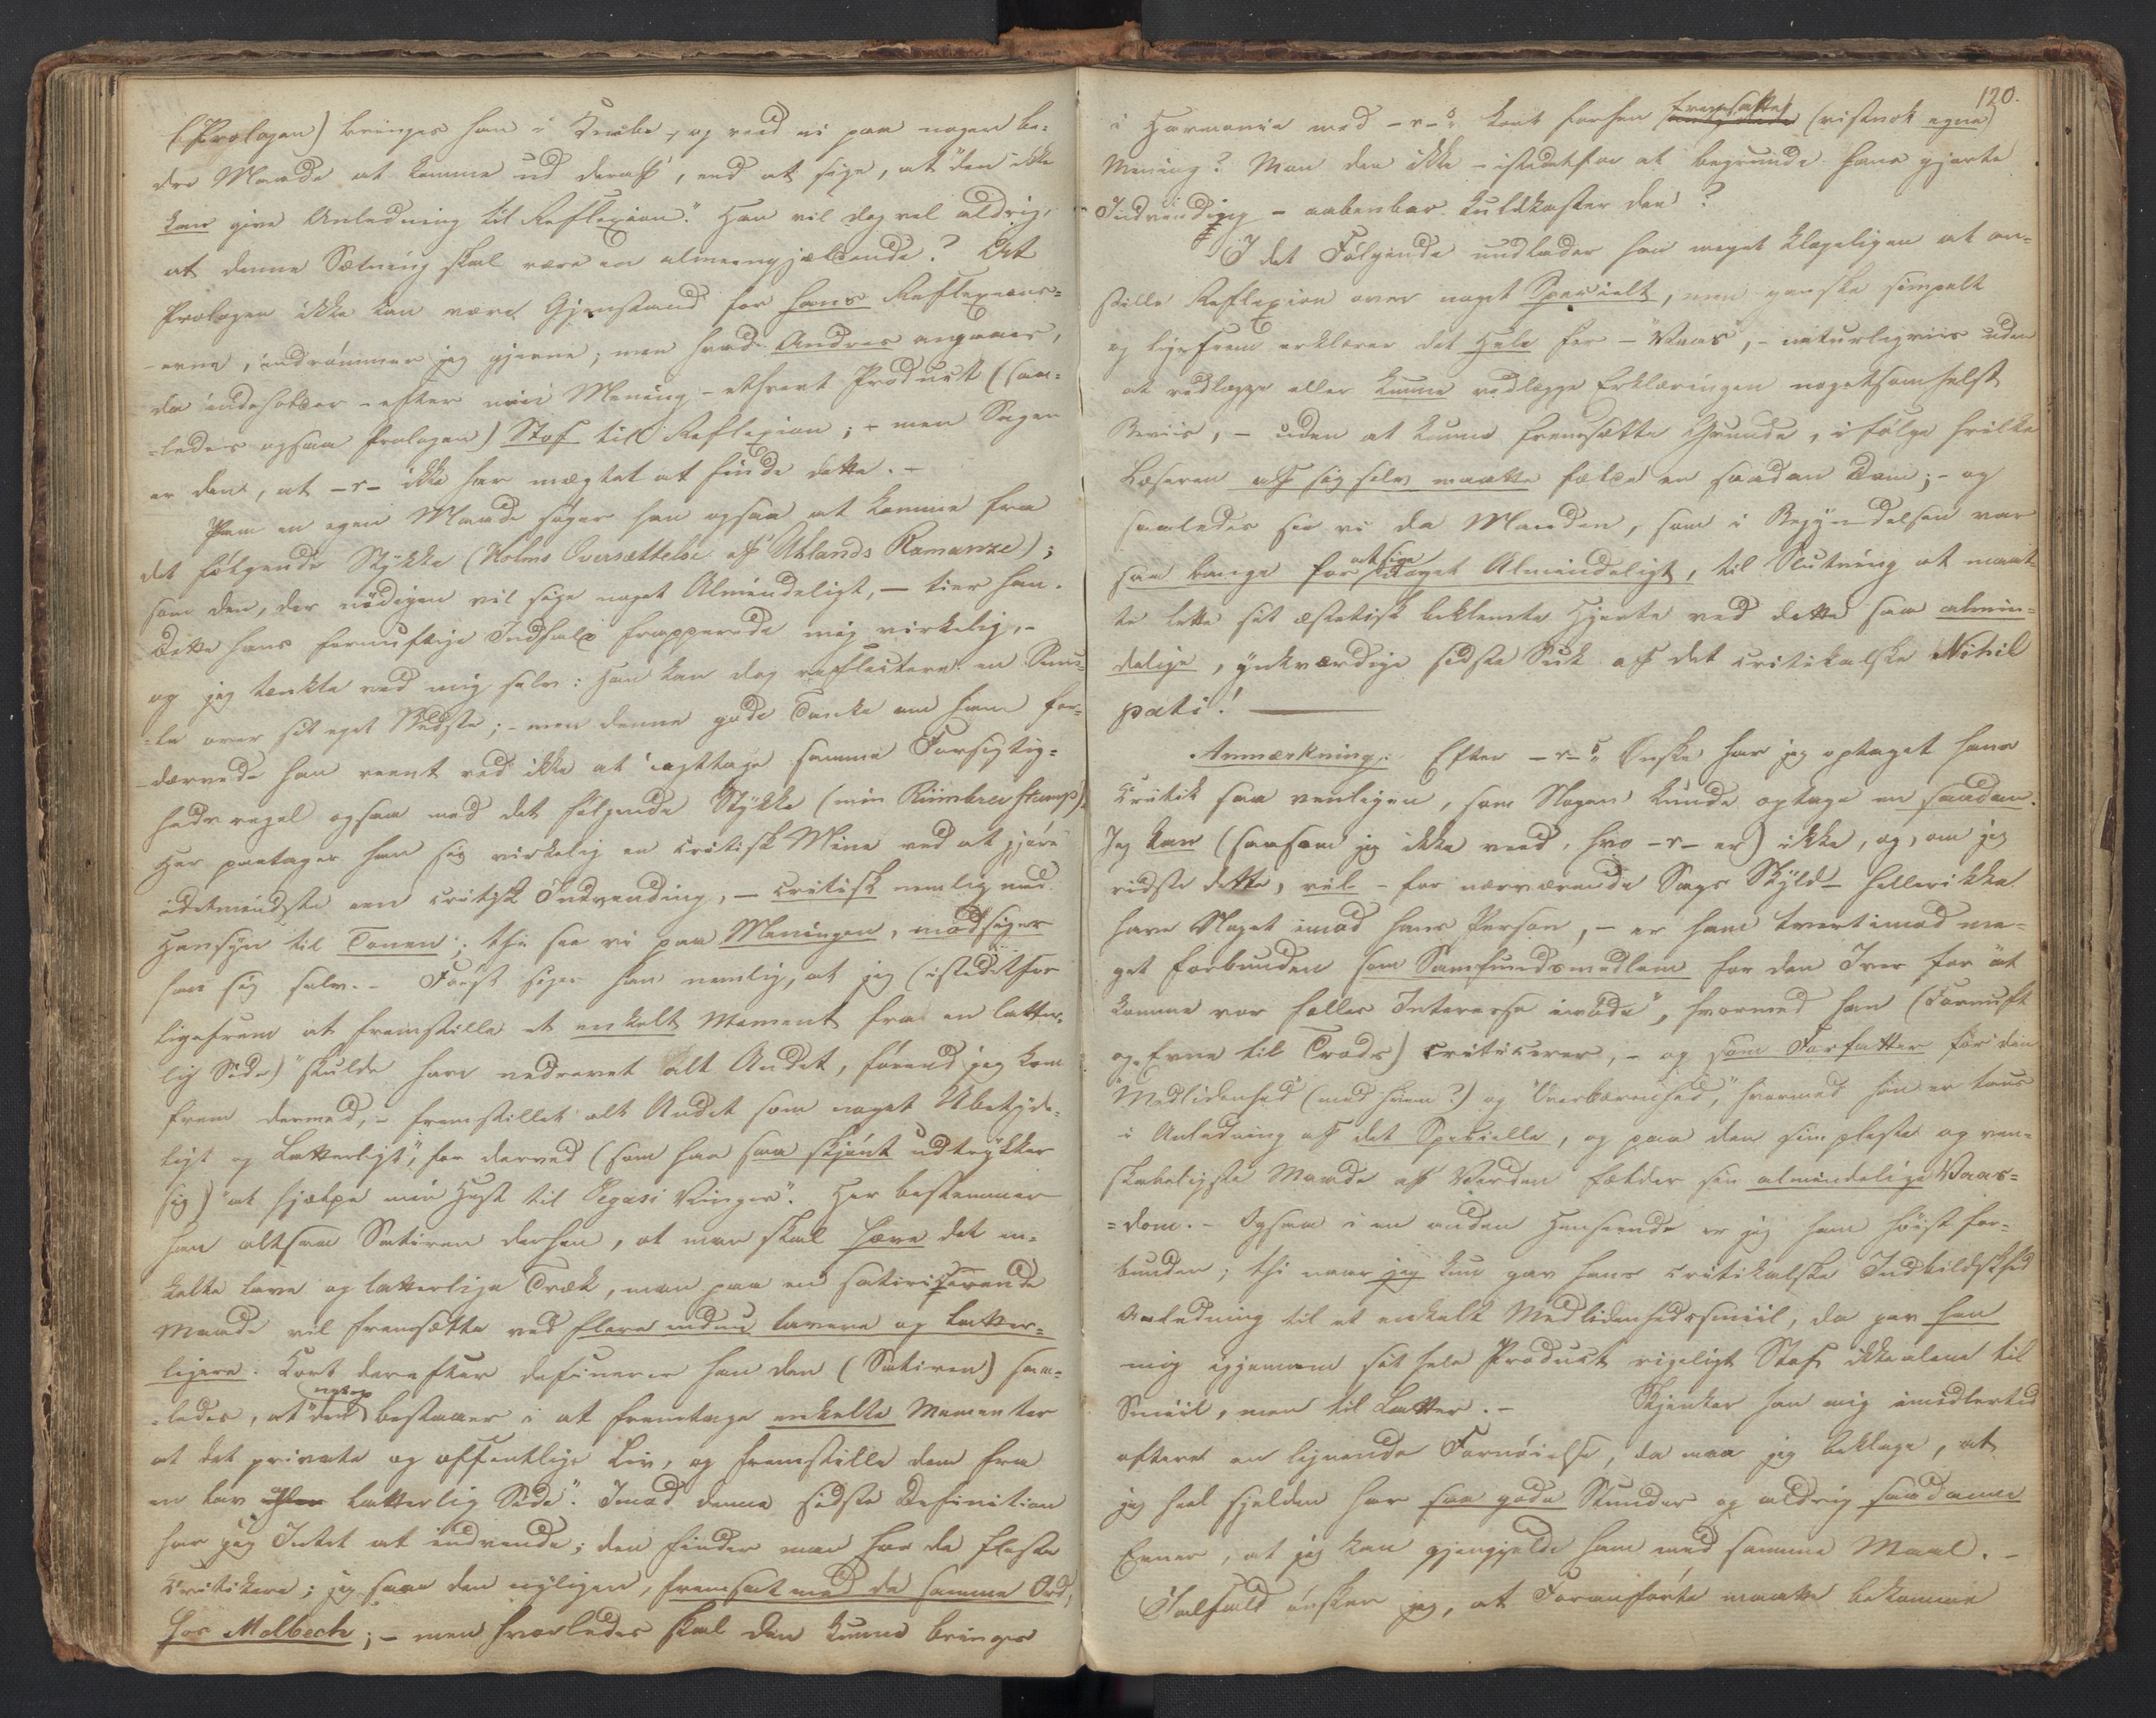 (Prologen) bringes han i Knibe, og veed ei paa nogen be-
dre Maade at komme ud deraf, end at sige, at "den ikke
kan give Anledning til Reflexion." Han vil dog vel aldrig,
at denne Sætning skal være en almeengjældende? At
Prologen ikke kan være Gjenstand for hans Reflexions-
-evne, indrømmer jeg gjerne; men hvad Andres angaaer,
da indeholder - efter min Mening - ethvert Product (saa-
-ledes ogsaa Prologen) Stof til Reflexion; - men Sagen
er den, at -r- ikke har mægtet at finde dette. -
Paa en egen Maade søger han ogsaa at komme fra
det følgende Stykke (Holms Oversættelse af Uhlands Romanze);
som den, der nødigen vil sige noget Almindeligt, - tier han.
Dette hans fornuftige Indfald frapperede mig virkelig,-
og jeg tænkte ved mig selv: Han kan dog reflectere en Smu-
-le over sit eget Bedste; - men denne gode Tanke om ham for-
dærvede han reent ved ikke at iagttage samme Forsigtig-
hedsregel ogsaa med det følgende Stykke (min Riimbrevstump).
Her paatager han sig virkelig en critisk Mine ved at gjøre
idetmindste een critisk Indvending, - critisk nemlig med
Hensyn til Tonen; thi see vi paa Meningen, modsiger
han sig selv. - Først siger han nemlig, at jeg (istedetfor
ligefrem at fremstille et enkelt Moment fra en latter-
lig Side) "skulde have nedrevet alt Andet, førend jeg kom
frem dermed, - fremstillet alt Andet som noget Ubetyde-
ligt og Latterligt", for derved (som han saa skjønt udtrykker
sig) "at hjælpe min Hest til Pegasi Vinger". Her bestemmer
han altsaa Satiren derhen, at man skal hæve det en-
kelte lave og latterlige Træk, man paa en satiriserende
Maade vil fremsætte ved flere endnu lavere og latter-
ligere. Kort derefter definerer han den (Satiren) saa-
-ledes, at "den netop bestaaer i at fremtage enkelte Momenter
at det private og offentlige Liv, og fremstille dem fra
en lav eller latterlig Side". Imod denne sidste Definition
har jeg Intet at indvende; den finder man hos de fleste
Critikere; jeg saae den nyligen, fremsat med de samme Ord,
hos Molbech; - men hvorledes skal den kunne bringes
120.
i Harmonie med -r-s kort forhen fremsatte (vistnok egne)
Mening? Mon den ikke - istedetfor at begrunde hans gjorte
Indvending - aabenbar kuldkaster den?
I det Følgende undlader han meget klogeligen at an-
stille Reflexion over noget Specielt, men ganske simpelt
og ligefrem erklærer det Hele for - "Vaas", - naturligviis uden
at vedlægge eller kunne vedlægge Erklæringen nogetsomhelst
Beviis, - uden at kunne fremsætte Grunde, i følge hvilke
Læseren af sig selv maatte fælde en saadan Dom; - og
saaledes see vi da Manden, som i Begyndelsen var
saa bange for at sige Noget Almindeligt, til Slutning at maat-
te lette sit æsthetisk beklemte Hjerte ved dette saa almin-
delige, ynkværdige sidste Suk af det critikalske Nihil
pati!
Anmærkning. Efter -r-s Ønske har jeg optaget hans
Critik saa venligen, som Nogen kunde optage en saadan.
Jeg kan (saasom jeg ikke veed, hvo -r- er) ikke, og, om jeg
vidste dette, vil - for nærværende Sags Skyld - heller ikke
have Noget imod hans Person, - er ham tvertimod me-
get forbunden som Samfundsmedlem for den Iver for "at
komme vor fælles Interesse imøde", hvormed han (Fornuft
og Evne til Trods) criticerer, - og som Forfatter for den
"Medlidenhed" (med hvem?) og "Overbærenhed", hvormed han er taus
i Anledning af det Specielle, og paa den simpleste og ven-
skabeligste Maade af Verden fælder sin almindelige Vaas-
-dom. - Ogsaa i en anden Henseende er jeg ham høist for-
bunden; thi naar jeg kun gav hans critikalske Indbildskhed
Anledning til et enkelt Medlidenhedssmiil, da gav han
mig igjennem sit hele Product rigeligt Stof ikke alene til
Smiil, men til Latter. - Skjenker han mig imidlertid
oftere en lignende Fornøielse, da maa jeg beklage, at
jeg heel sjelden har saa gode Stunder og aldrig saadanne
Evner, at jeg kan gjengjelde ham med samme Maal. -
Ialfald ønsker jeg, at Foranførte maatte bekomme